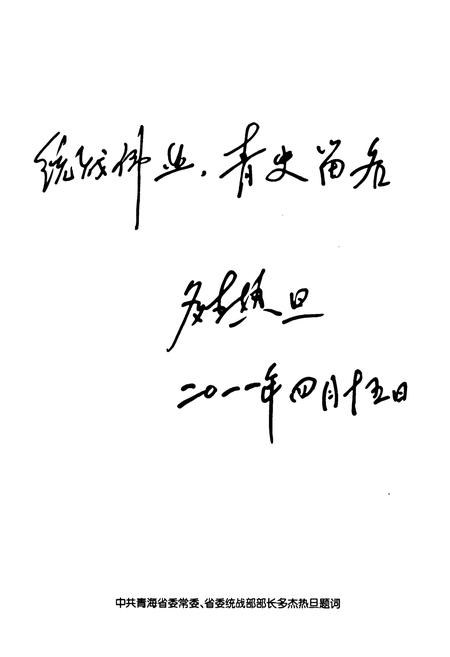 统战伟业，青史留名
多杰热旦
二〇一一年四月十五日
中共青海省委常委、省委统战部部长多杰热旦题词